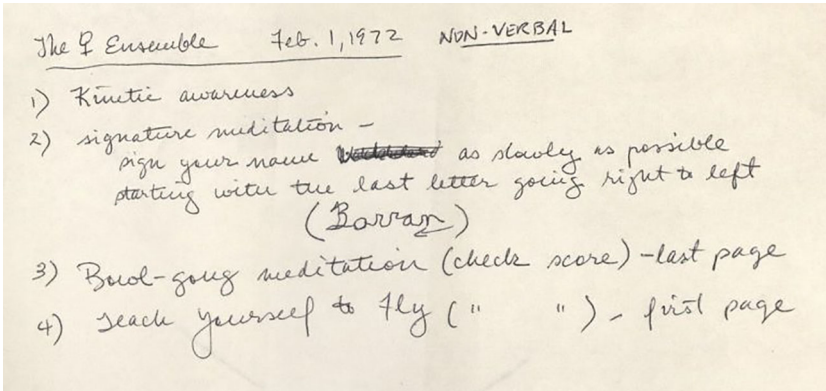 The ♀ Ensemble Feb. 1, 1972 NON-VERBAL
1) Kinetic awareness
2) signature meditation -
sign your name as slowly as possible
starting with the last letter going right to left
(Barran)
3) Bowl-gong meditation (check score) - last page
4) Teach Yourself to Fly (" ") - first page